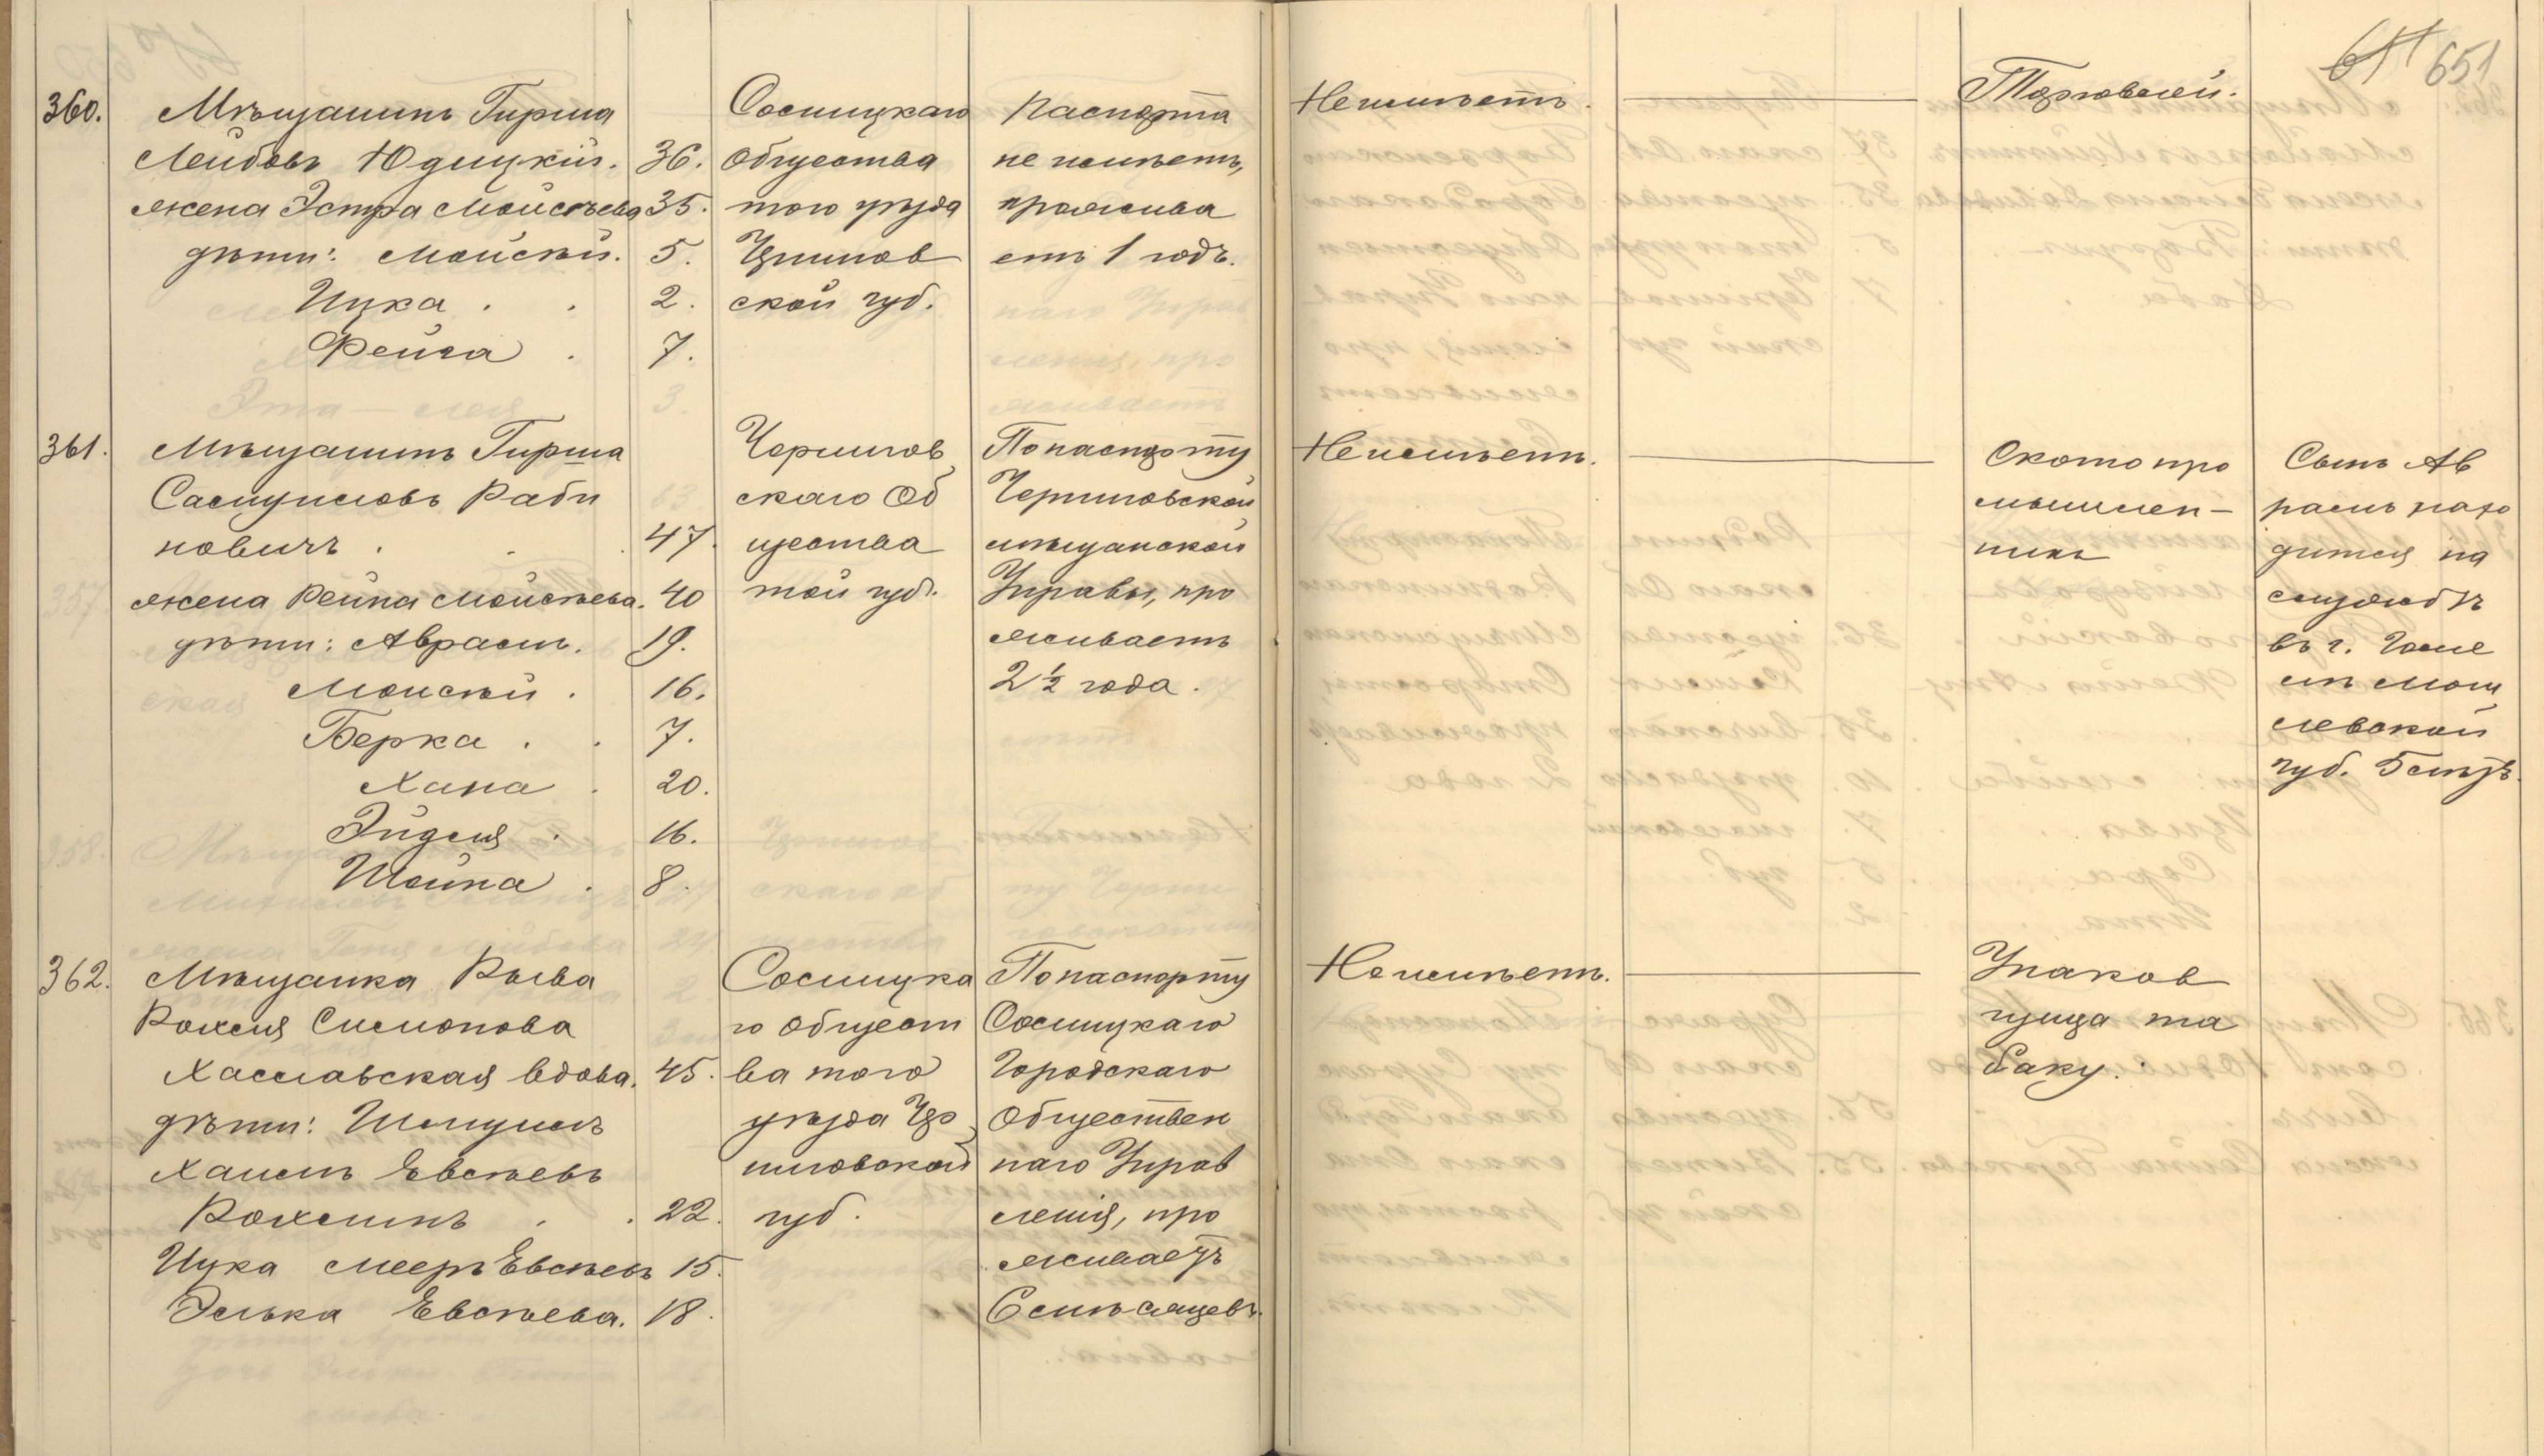 651
360. Мѣщанинъ Гирша
Лейбовъ Юдицкій. 36.
жена Эстра Мойсѣева 35.
дѣти: Мойсѣй. 5.
Ицка . . 2.
Фейга . 7.
Сосницкаго
Общества
того уѣзда
Чернигов
ской губ.
Паспорта
не имѣетъ,
прожива
етъ 1 годъ.
Не имѣетъ.
Торговлей.
361. Мѣщанинъ Гирша
Самуиловъ Раби
новичъ . . . 47.
жена Рейна Мойсѣева. 40
дѣти: Аврамъ. 19.
Мойсѣй . 16.
Берка . . 7.
Хана . 20.
Эйдля . 16.
Шейна . 8.
Чернигов
скаго Об
щества
той губ.
По паспорту
Черниговской
мѣщанской
Управы, про
живаетъ
2 ½ года.
Не имѣетъ.
Скотопро
мышлен-
никъ
Сынъ Ав
рамъ нахо
дится на
службѣ
въ г. Гоме
лѣ Моги
левской
губ.
362. Мѣщанка Рыва
Рохля Симонова
Хаславская вдова. 45.
дѣти: Шмуилъ
Хаимъ Евсѣевъ
Рохлинъ . . 22.
Ицка Мееръ Евсѣевъ 15.
Элька Евсѣева. 18.
Сосницка
го Общест
ва того
уѣзда Чер
ниговской
губ.
По паспорту
Сосницкаго
Городскаго
Обществен
наго Управ
ленія, про
живаетъ
6 мѣсяцевъ.
Не имѣетъ.
Упаков
щица та
баку.